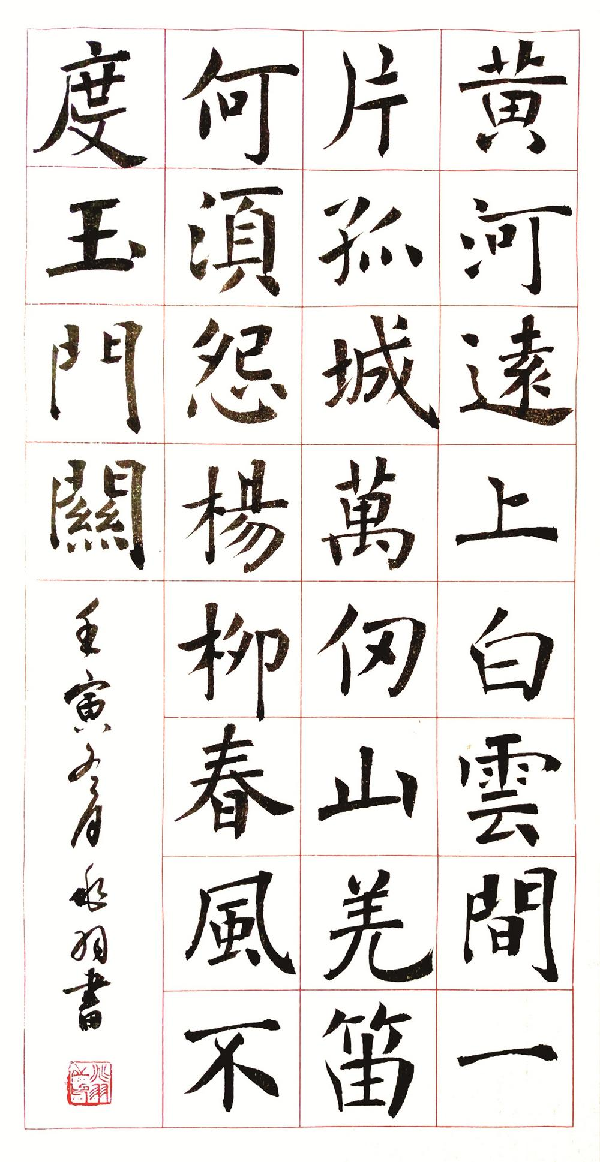 黃河遠上白雲間一
片孤城萬仞山羌笛
何須怨楊柳春風不
度玉門關
壬寅冬月永羽書